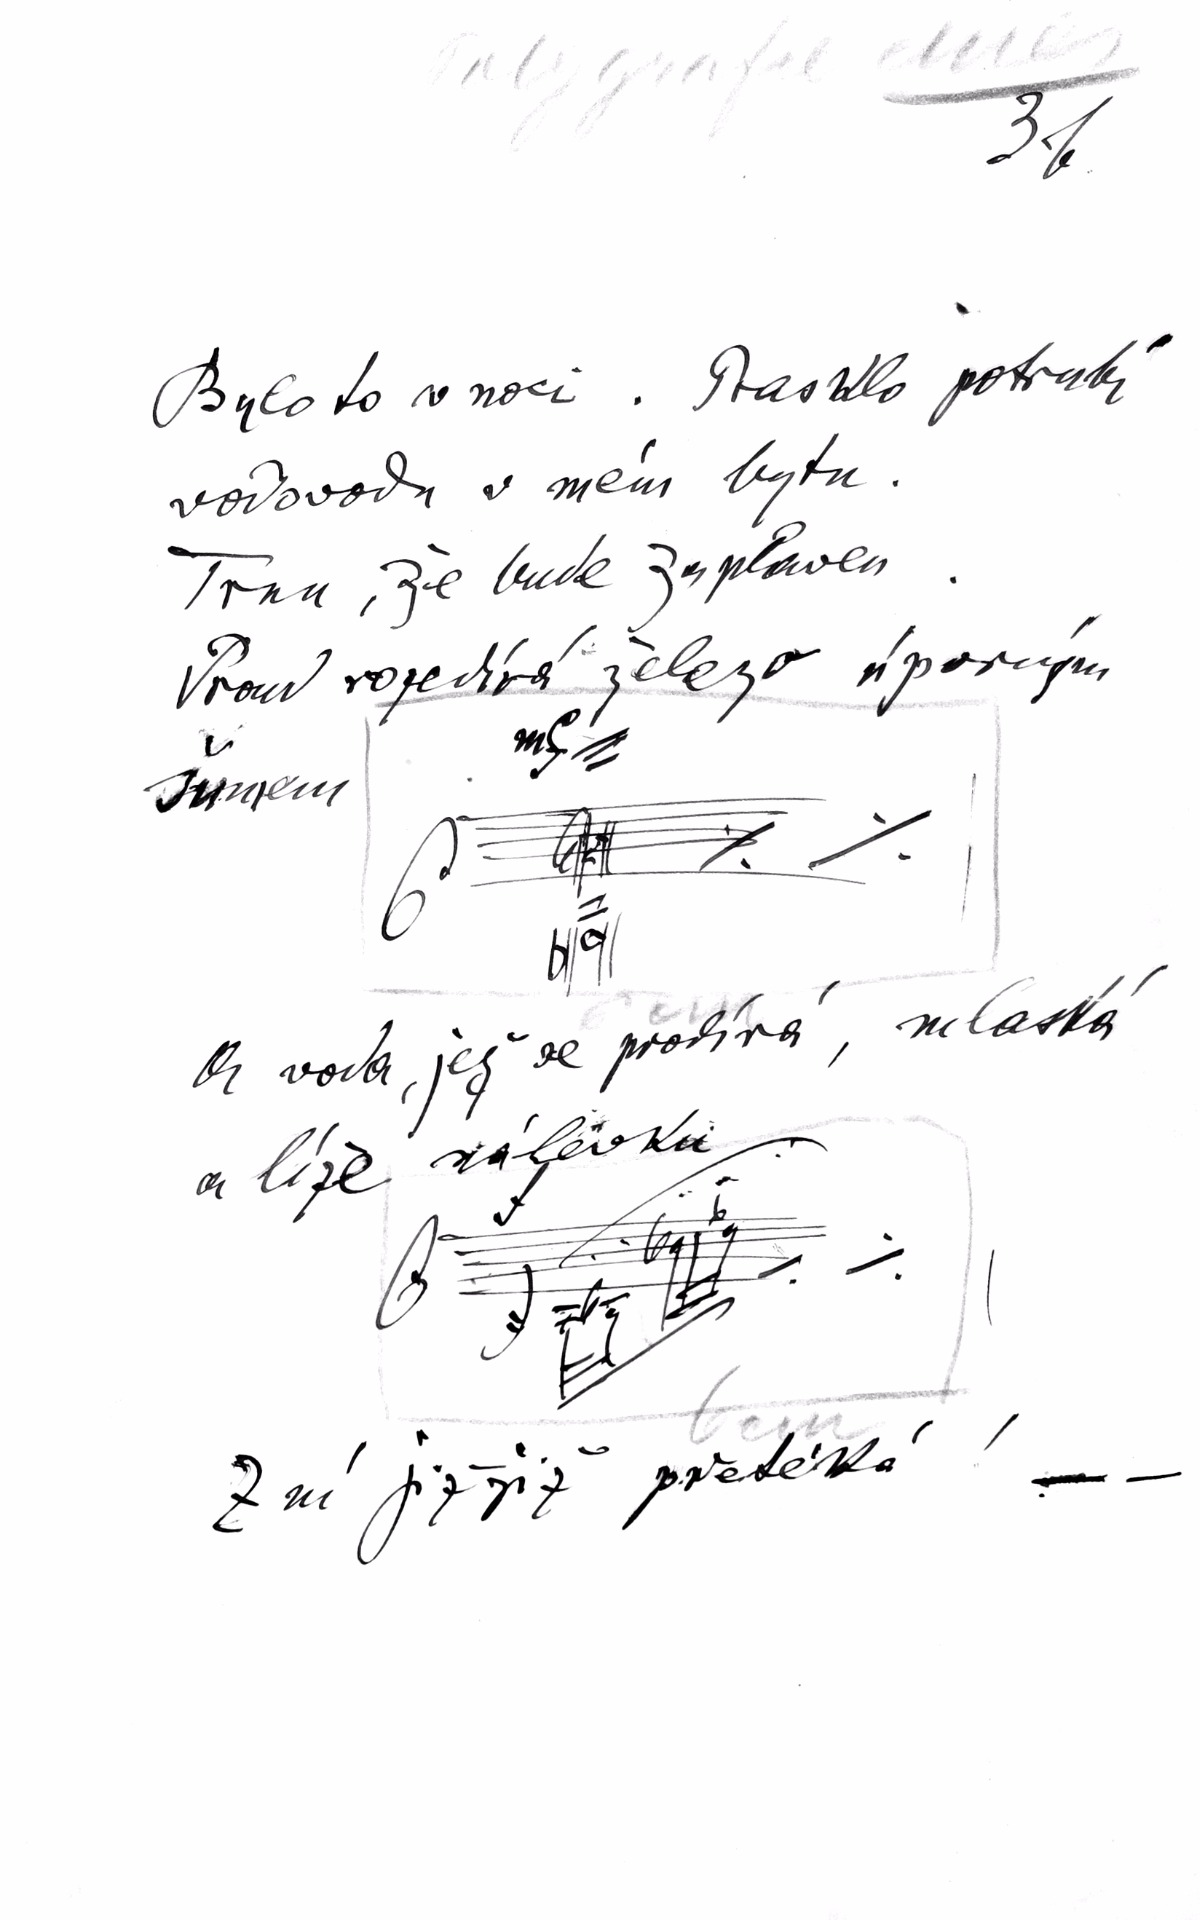 3b
Bylo to v noci. Prasklo potrubí
vodovodu v mém bytu.
Trnu, že bude zaplaven.
Proud rozedírá železo úporným
šumem
A voda, jež se prodírá, mlaská
a líže nálevku
6 cm
Z ní již–již přetéká! — —